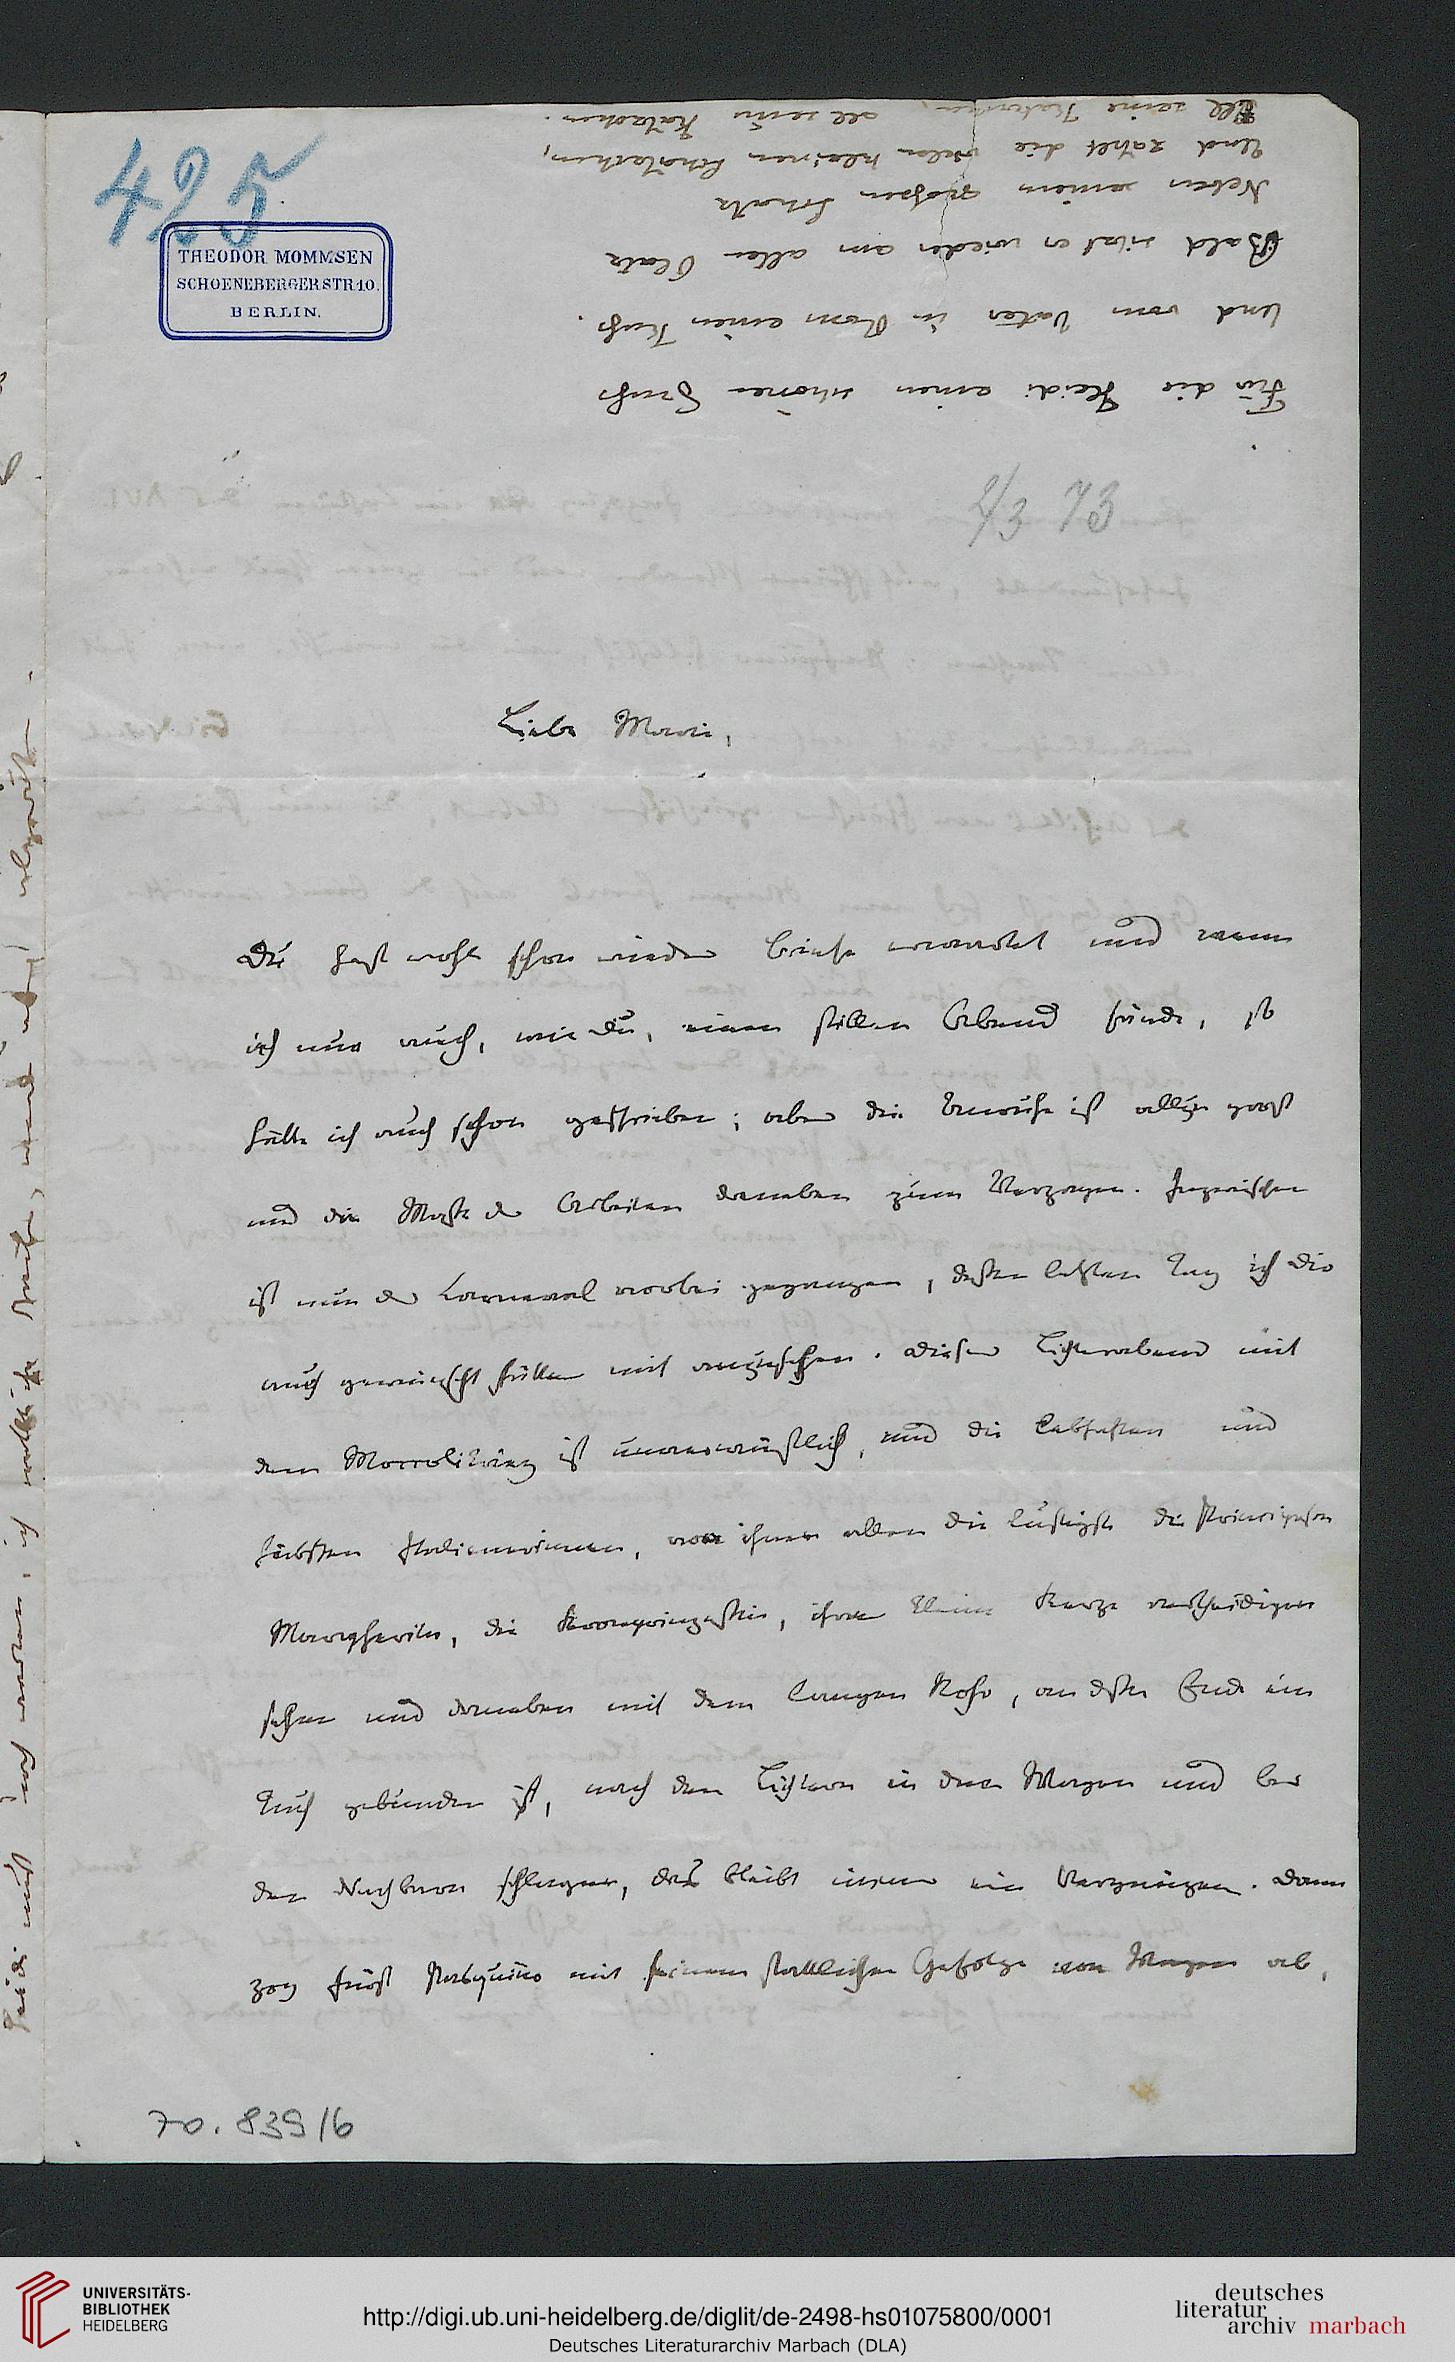 425
THEODOR MOMMSEN
SCHOENEBERGERSTR.10.
BERLIN.
Für die Heidi einen schönen Gruß
Und vom Vater in Rom einen Kuß.
Bald sitzt er wieder am alten Platz
Neben seinem großen Schatz
Und zählt die vielen kleinen Schätzchen,
All seine Katerchen, all seine Kätzchen.
2/3 73
Liebe Marie,
Du hast wohl schon wieder Briefe erwartet und wenn
ich nur auch, wie Du, einen stillen Abend fände, so
hätte ich auch schon geschrieben; aber die Unruhe ist allzu groß
und die Masse der Arbeiten daneben zum Verzagen. Inzwischen
ist nun der Carneval vorbei gegangen, dessen letzten Tag ich Dir
auch gewünscht hätte mit anzusehen. Dieser Lichterabend mit
dem Moccolikrieg ist unverwüstlich, und die lebhaften und
hübschen Italienerinnen, von ihnen allen die lustigste die Principessa
Margherita, die Kronprinzessin, ihre kleine Kerze vertheidigen
sehen und daneben mit dem langen Rohr, an dessen Ende ein
Tuch gebunden ist, nach den Lichtern in den Wagen und bei
den Nachbarn schlagen, das bleibt immer ein Vergnügen. Dann
zog Fürst Pasquino mit seinem stattlichen Gefolge von Wagen ab,
70.839/6
UNIVERSITÄTS-
BIBLIOTHEK
HEIDELBERG
http://digi.ub.uni-heidelberg.de/diglit/de-2498-hs01075800/0001
Deutsches Literaturarchiv Marbach (DLA)
deutsches
literatur
archiv marbach